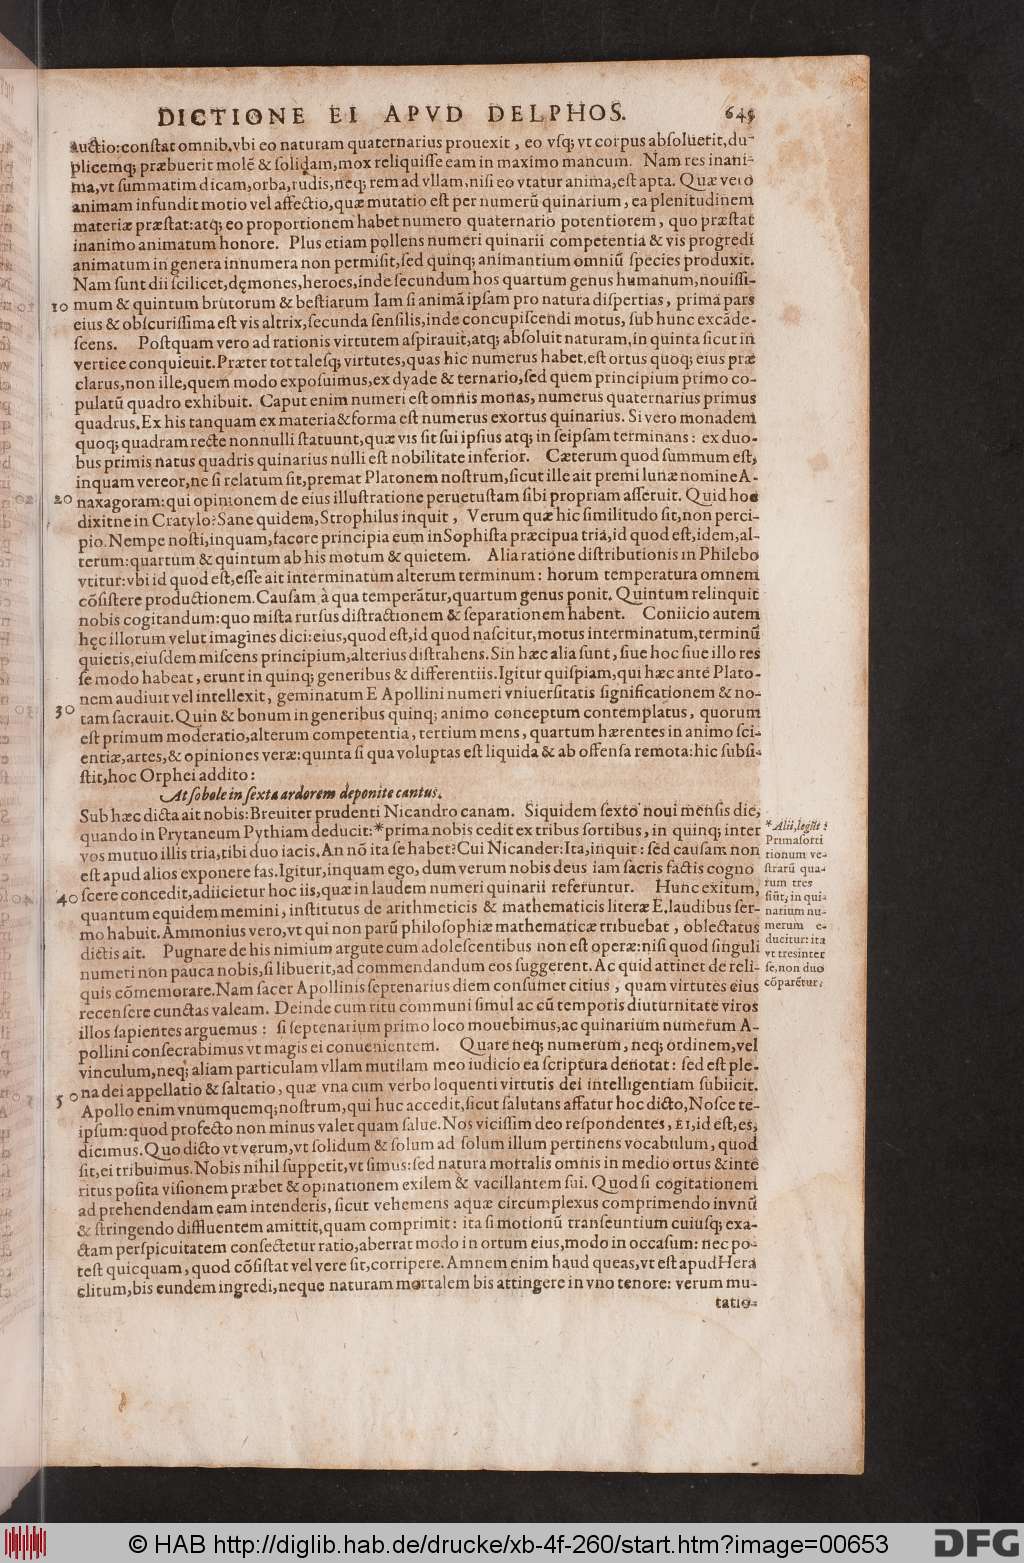 DICTIONE EI APVD DELPHOS. 645
auctio:constat omnib.vbi eo naturam quaternarius prouexit, eo vsq; vt corpus absoluerit,du-
plicemq; præbuerit molē & solidam,mox reliquisse eam in maximo mancum. Nam res inani-
ma,vt summatim dicam,orba,rudis,neq; rem ad vllam,nisi eo vtatur anima,est apta. Quæ vero
animam infundit motio vel affectio,quæ mutatio est per numerū quinarium, ea plenitudinem
materiæ præstat:atq; eo proportionem habet numero quaternario potentiorem, quo præstat
inanimo animatum honore. Plus etiam pollens numeri quinarii competentia & vis progredi
animatum in genera innumera non permisit,sed quinq; animantium omniū species produxit.
Nam sunt dii scilicet,dęmones,heroes,inde secundum hos quartum genus humanum,nouissi-
10 mum & quintum brutorum & bestiarum Iam si animā ipsam pro natura dispertias, prima pars
eius & obscurissima est vis altrix,secunda sensilis,inde concupiscendi motus, sub hunc excāde-
scens. Postquam vero ad rationis virtutem aspirauit,atq; absoluit naturam,in quinta sicut in
vertice conquieuit.Præter tot talesq; virtutes,quas hic numerus habet,est ortus quoq; eius præ
clarus,non ille,quem modo exposuimus,ex dyade & ternario,sed quem principium primo co-
pulatū quadro exhibuit. Caput enim numeri est omnis monas, numerus quaternarius primus
quadrus.Ex his tanquam ex materia&forma est numerus exortus quinarius. Si vero monadem
quoq; quadram recte nonnulli statuunt,quæ vis sit sui ipsius atq; in seipsam terminans: ex duo-
bus primis natus quadris quinarius nulli est nobilitate inferior. Cæterum quod summum est,
inquam vereor,ne si relatum sit,premat Platonem nostrum,sicut ille ait premi lunæ nomine A-
20 naxagoram:qui opinionem de eius illustratione peruetustam sibi propriam asseruit. Quid hoc
dixitne in Cratylo?Sane quidem,Strophilus inquit, Verum quæ hic similitudo sit,non perci-
pio.Nempe nosti,inquam,facere principia eum in Sophista præcipua tria,id quod est,idem,al-
terum:quartum & quintum ab his motum & quietem. Alia ratione distributionis in Philebo
vtitur:vbi id quod est,esse ait interminatum alterum terminum: horum temperatura omnem
cōsistere productionem.Causam à qua temperātur,quartum genus ponit. Quintum relinquit
nobis cogitandum:quo mista rursus distractionem & separationem habent. Coniicio autem
hęc illorum velut imagines dici:eius,quod est,id quod nascitur,motus interminatum,terminū
quietis,eiusdem miscens principium,alterius distrahens. Sin hæc alia sunt, siue hoc siue illo res
se modo habeat, erunt in quinq; generibus & differentiis.Igitur quispiam,qui hæc ante Plato-
nem audiuit vel intellexit, geminatum E Apollini numeri vniuersitatis significationem & no-
30 tam sacrauit.Quin & bonum in generibus quinq; animo conceptum contemplatus, quorum
est primum moderatio,alterum competentia, tertium mens, quartum hærentes in animo sci-
entiæ,artes,& opiniones veræ:quinta si qua voluptas est liquida & ab offensa remota:hic subsi-
stit,hoc Orphei addito:
At sobole in sexta ardorem deponite cantus.
Sub hæc dicta ait nobis:Breuiter prudenti Nicandro canam. Siquidem sexto noui mensis die,
quando in Prytaneum Pythiam deducit:*prima nobis cedit ex tribus sortibus, in quinq; inter
vos mutuo illis tria,tibi duo iacis.An nō ita se habet?Cui Nicander:Ita,inquit: sed causam non
est apud alios exponere fas.Igitur,inquam ego, dum verum nobis deus iam sacris factis cogno
40 scere concedit,adiicietur hoc iis,quæ in laudem numeri quinarii referuntur. Hunc exitum,
quantum equidem memini, institutus de arithmeticis & mathematicis literæ E.laudibus ser-
mo habuit. Ammonius vero,vt qui non parū philosophiæ mathematicæ tribuebat, oblectatus
dictis ait. Pugnare de his nimium argute cum adolescentibus non est operæ:nisi quod singuli
numeri non pauca nobis,si libuerit,ad commendandum eos suggerent. Ac quid attinet de reli-
quis cōmemorare.Nam sacer Apollinis septenarius diem consumet citius, quam virtutes eius
recensere cunctas valeam. Deinde cum ritu communi simul ac cū temporis diuturnitate viros
illos sapientes arguemus: si septenarium primo loco mouebimus,ac quinarium numerum A-
pollini consecrabimus vt magis ei conuenientem. Quare neq; numerum, neq; ordinem,vel
vinculum,neq; aliam particulam vllam mutilam meo iudicio ea scriptura denotat: sed est ple-
50 na dei appellatio & saltatio, quæ vna cum verbo loquenti virtutis dei intelligentiam subiicit.
Apollo enim vnumquemq;nostrum,qui huc accedit,sicut salutans affatur hoc dicto,Nosce te-
ipsum:quod profecto non minus valet quam salue.Nos vicissim deo respondentes, EI,id est,es,
dicimus.Quo dicto vt verum,vt solidum & solum ad solum illum pertinens vocabulum, quod
sit,ei tribuimus.Nobis nihil suppetit,vt simus:sed natura mortalis omnis in medio ortus & inte
ritus posita visionem præbet & opinationem exilem & vacillantem sui. Quod si cogitationem
ad prehendendam eam intenderis, sicut vehemens aquæ circumplexus comprimendo in vnū
& stringendo diffluentem amittit,quam comprimit: ita si motionū transeuntium cuiusq; exa-
ctam perspicuitatem consectetur ratio,aberrat modo in ortum eius,modo in occasum: nec po-
test quicquam, quod cōsistat vel vere sit,corripere. Amnem enim haud queas,vt est apud Hera
clitum,bis eundem ingredi,neque naturam mortalem bis attingere in vno tenore: verum mu-
tatio-
* Alii,legūt:
Primasorti
tionum ve-
strarū qua-
rum tres
siūt, in qui-
narium nu-
merum e-
ducitur:ita
vt tres inter
se,non duo
cōparētur.
© HAB http://diglib.hab.de/drucke/xb-4f-260/start.htm?image=00653
DFG